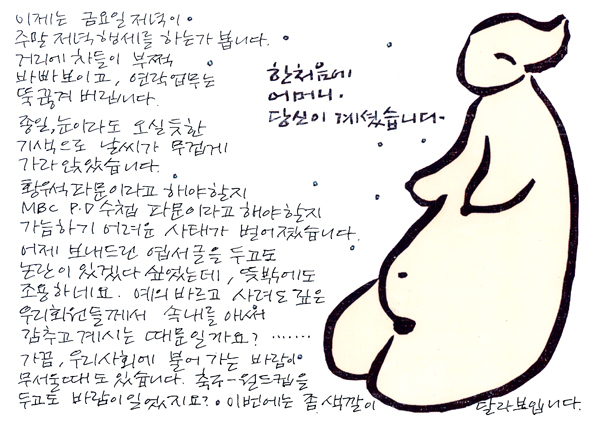 이제는 금요일 저녁이
주말 저녁 행세를 하는가 봅니다.
거리에 차들이 부쩍
바빠보이고, 연락업무는
뚝 끊겨 버립니다.
종일, 눈이라도 오실듯한
기색으로 날씨가 무겁게
가라앉았습니다.
황우석 파문이라고 해야할지
MBC P.D 수첩 파문이라고 해야할지
가늠하기 어려운 사태가 벌어졌습니다.
어제 보내드린 엽서글을 두고도
논란이 있겠다 싶었는데, 뜻밖에도
조용하네요. 예의 바르고 사려도 깊은
우리회원들께서 속내를 애써
감추고 계시는 때문일까요? ........
가끔, 우리사회에 불어 가는 바람이
무서울때도 있습니다. 축구-월드컵을
두고도 바람이 일었지요? 이번에는 좀 색깔이 달라보입니다.
한처음에
어머니.
당신이 계셨습니다.